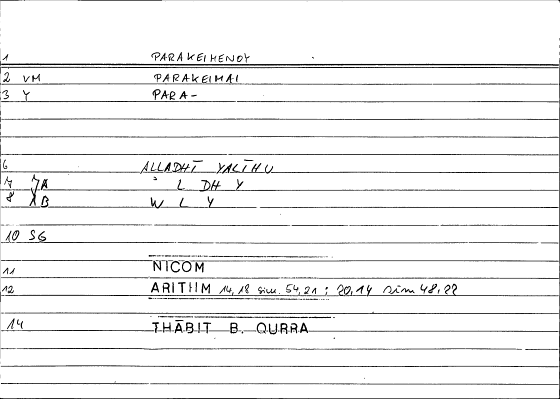 1 PARAKEIMENOY
2 VM PARAKEIMAI
3 Y PARA-
6 ALLADHĪ YALĪHU
7 JA ʾ L DH Y
8 AB W L Y
10 SG
11 NICOM
12 ARITHM 14,18 sim. 54,21 ; 20,14 sim 48,22
14 THĀBIT B. QURRA